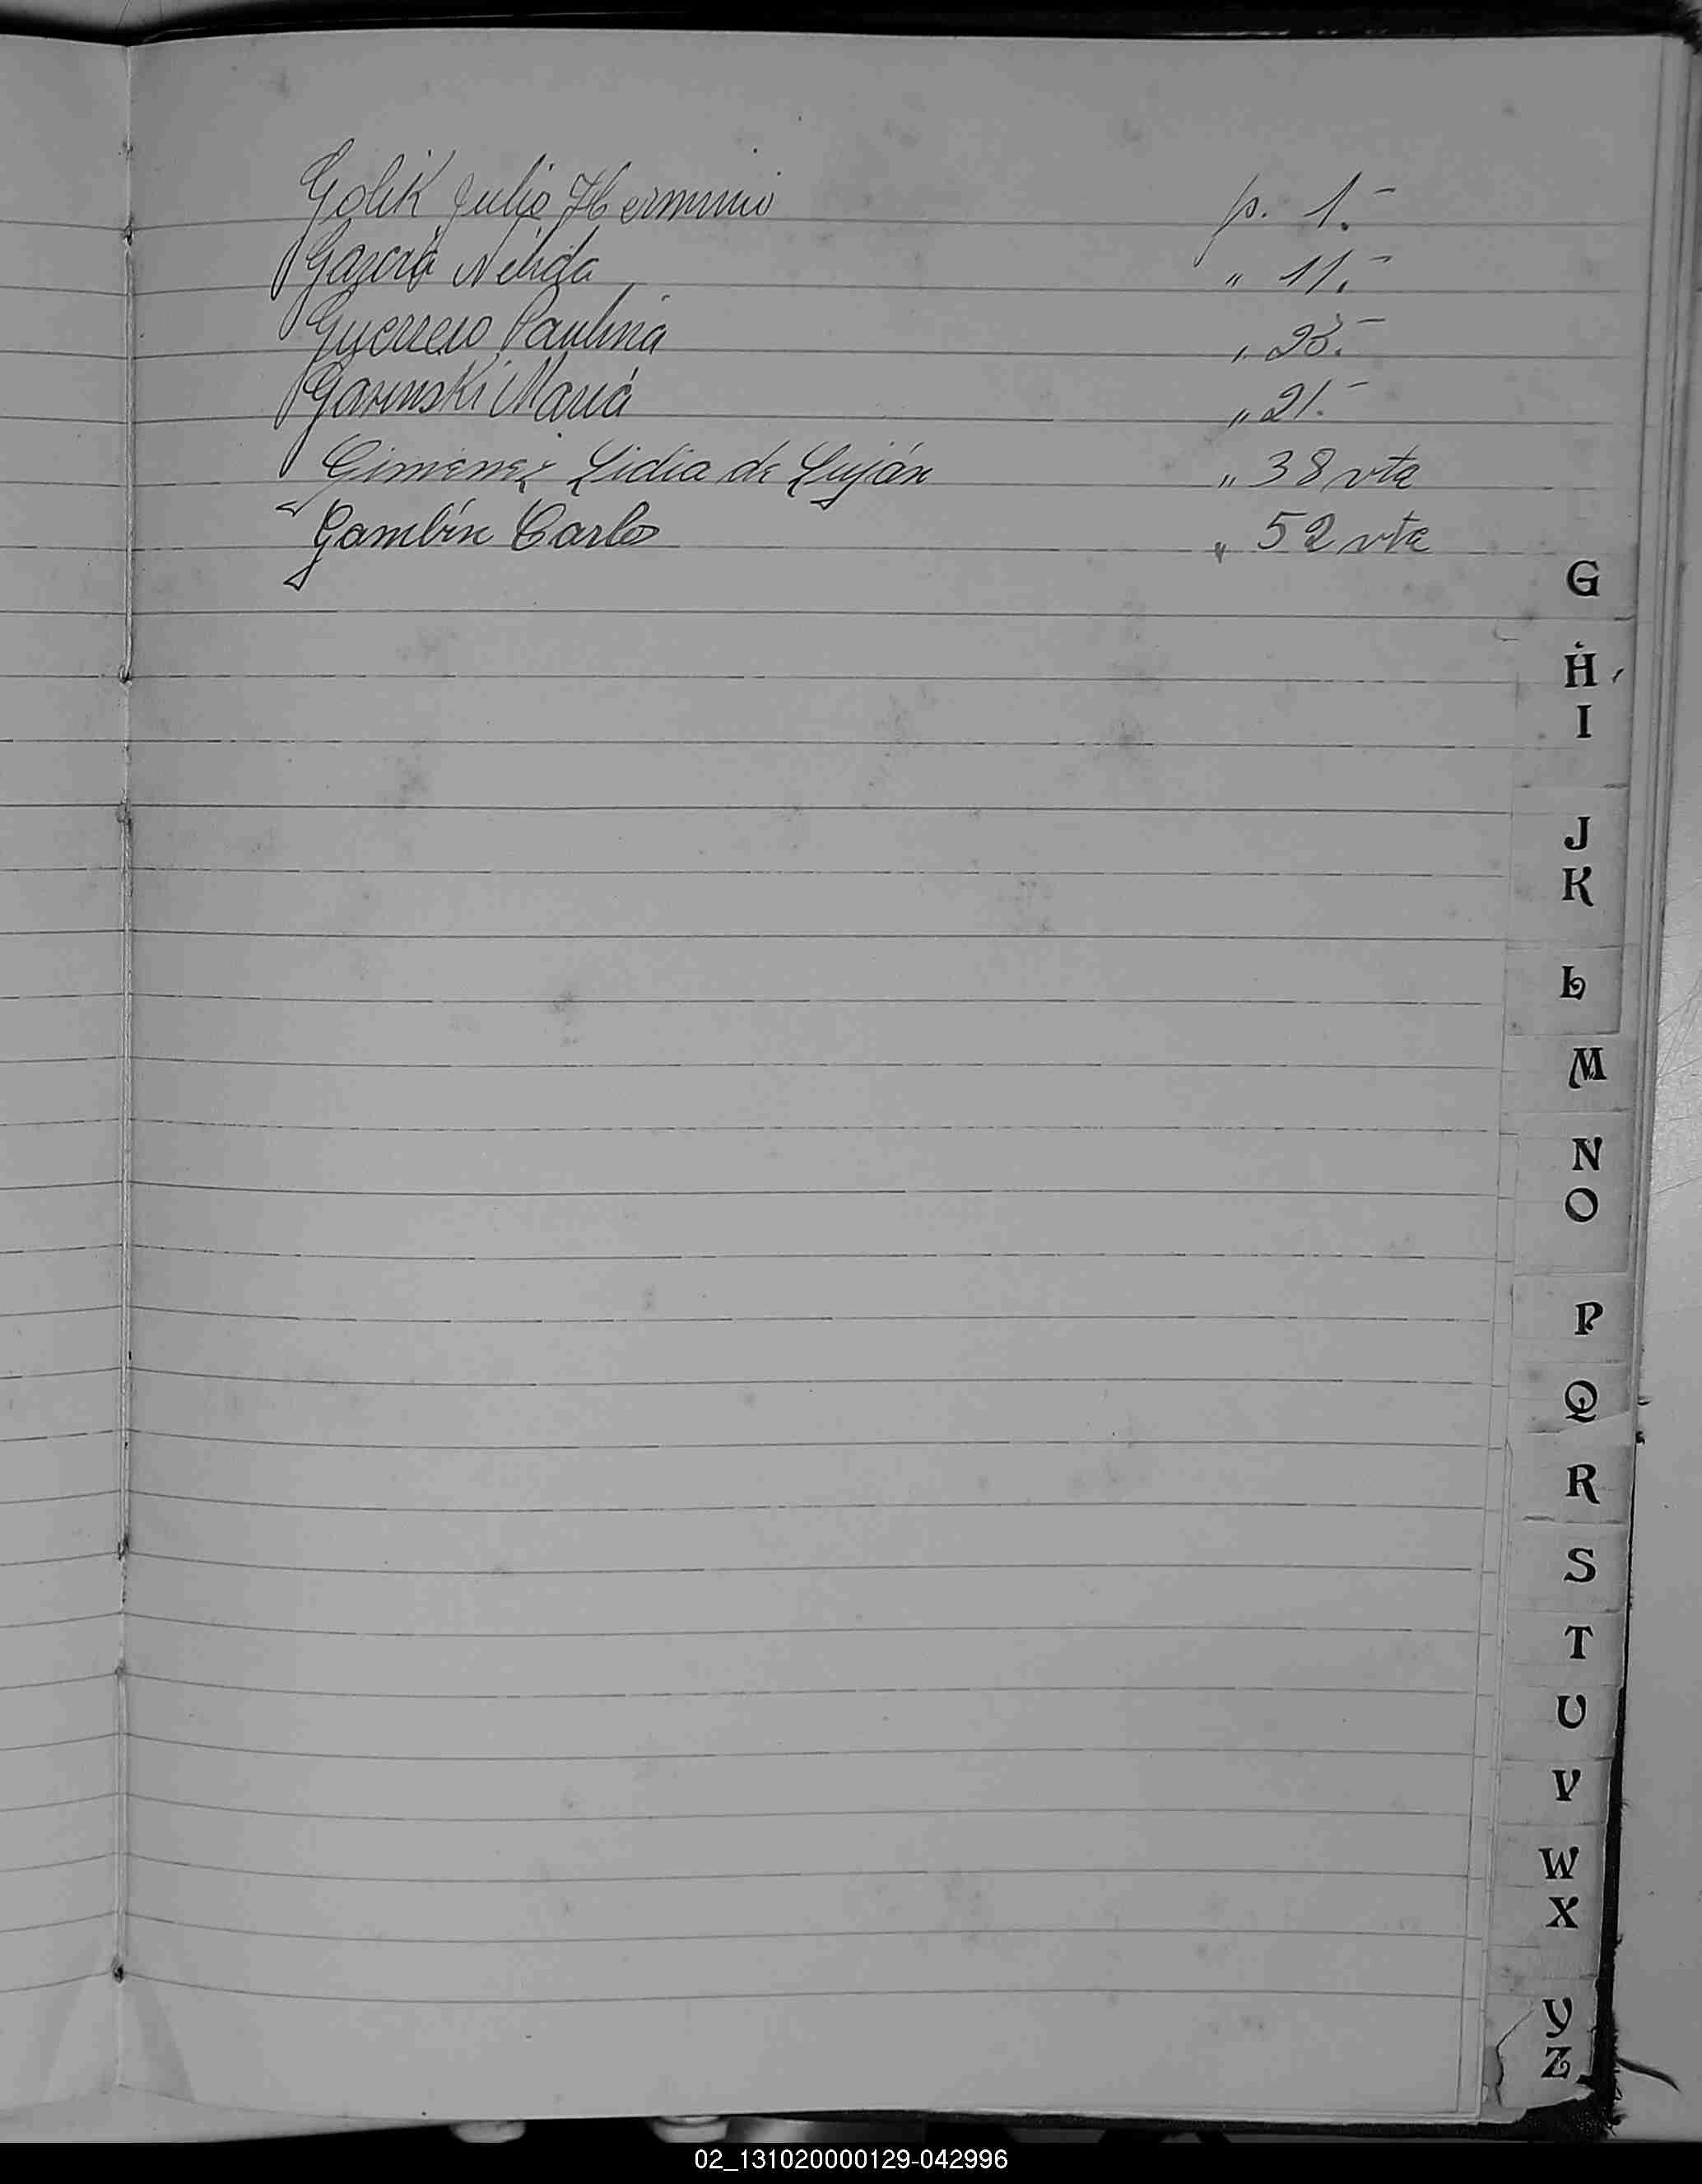 Golik Julio Herminio p. 1.-
García Nélida " 11.-
Guerrero Paulina " 25.-
Gavinski María " 21.-
Gimenez Lidia de Luján " 38 vta
Gambín Carlos " 52 vta
G
H
I
J
K
L
M
N
O
P
Q
R
S
T
U
V
W
X
Y
Z
02_131020000129-042996